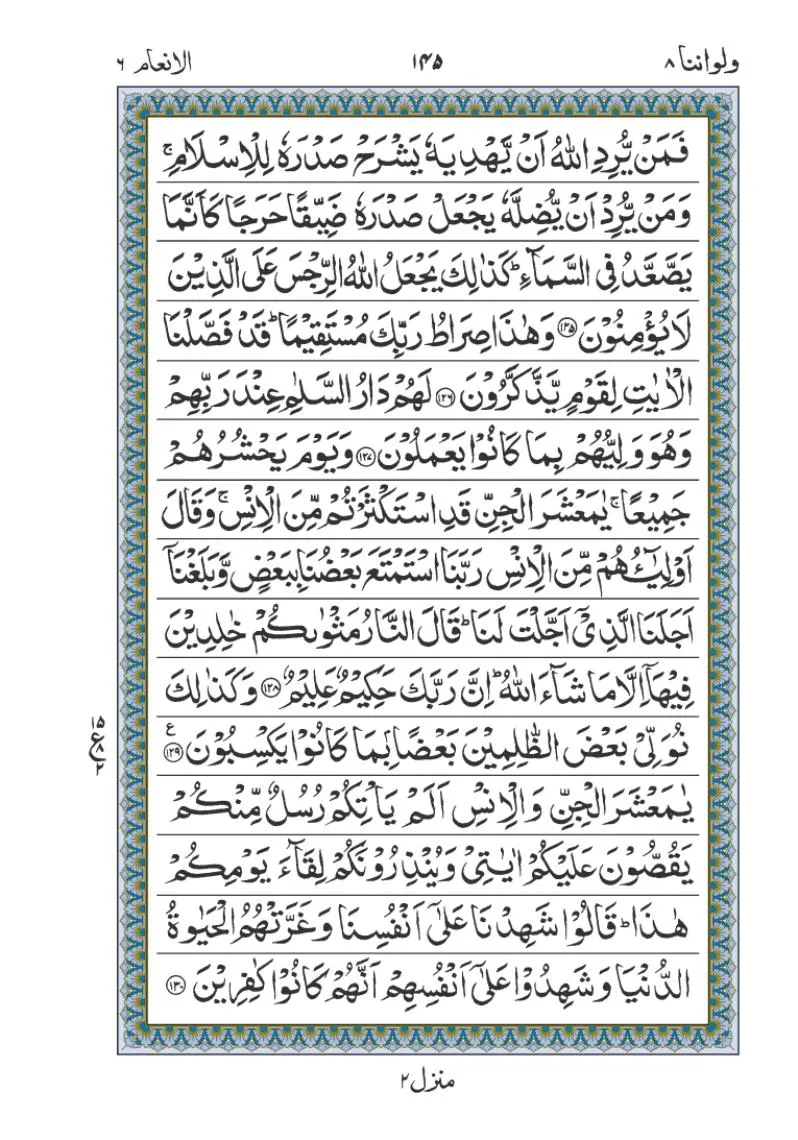 ولواننا ٨
١٤٥
الانعام ٦
فَمَنْ يُّرِدِ اللّٰهُ اَنْ يَّهْدِيَهٗ يَشْرَحْ صَدْرَهٗ لِلْاِسْلَامِ ۚ
وَمَنْ يُّرِدْ اَنْ يُّضِلَّهٗ يَجْعَلْ صَدْرَهٗ ضَيِّقًا حَرَجًا كَاَنَّمَا
يَصَّعَّدُ فِى السَّمَآءِ ؕ كَذٰلِكَ يَجْعَلُ اللّٰهُ الرِّجْسَ عَلَى الَّذِيْنَ
لَا يُؤْمِنُوْنَ ﴿۱۲۵﴾ وَهٰذَا صِرَاطُ رَبِّكَ مُسْتَقِيْمًا ؕ قَدْ فَصَّلْنَا
الْاٰيٰتِ لِقَوْمٍ يَّذَّكَّرُوْنَ ﴿۱۲۶﴾ لَهُمْ دَارُ السَّلٰمِ عِنْدَ رَبِّهِمْ
وَهُوَ وَلِيُّهُمْ بِمَا كَانُوْا يَعْمَلُوْنَ ﴿۱۲۷﴾ وَيَوْمَ يَحْشُرُهُمْ
جَمِيْعًا ۚ يٰمَعْشَرَ الْجِنِّ قَدِ اسْتَكْثَرْتُمْ مِّنَ الْاِنْسِ ۚ وَقَالَ
اَوْلِيٰٓـُٔهُمْ مِّنَ الْاِنْسِ رَبَّنَا اسْتَمْتَعَ بَعْضُنَا بِبَعْضٍ وَّبَلَغْنَاۤ
اَجَلَنَا الَّذِىْۤ اَجَّلْتَ لَنَا ؕ قَالَ النَّارُ مَثْوٰٮكُمْ خٰلِدِيْنَ
فِيْهَاۤ اِلَّا مَا شَآءَ اللّٰهُ ؕ اِنَّ رَبَّكَ حَكِيْمٌ عَلِيْمٌ ﴿۱۲۸﴾ وَكَذٰلِكَ
نُوَلِّىْ بَعْضَ الظّٰلِمِيْنَ بَعْضًاۢ بِمَا كَانُوْا يَكْسِبُوْنَ ﴿۱۲۹﴾ ع
يٰمَعْشَرَ الْجِنِّ وَالْاِنْسِ اَلَمْ يَاْتِكُمْ رُسُلٌ مِّنْكُمْ
يَقُصُّوْنَ عَلَيْكُمْ اٰيٰتِىْ وَيُنْذِرُوْنَكُمْ لِقَآءَ يَوْمِكُمْ
هٰذَا ؕ قَالُوْا شَهِدْنَا عَلٰٓى اَنْفُسِنَا وَغَرَّتْهُمُ الْحَيٰوةُ
الدُّنْيَا وَشَهِدُوْا عَلٰٓى اَنْفُسِهِمْ اَنَّهُمْ كَانُوْا كٰفِرِيْنَ ﴿۱۳۰﴾
۱۵
ع ۸
۲
منزل ٢